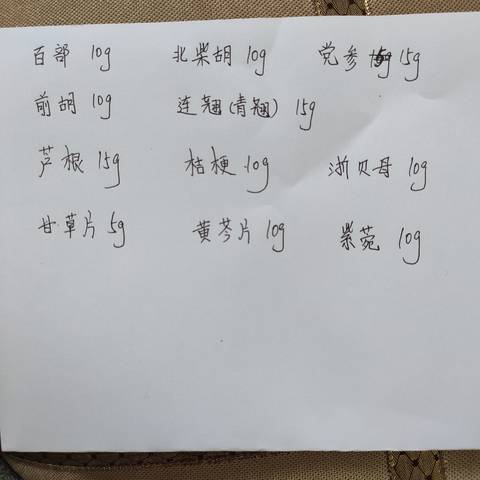 百部 10g 北柴胡 10g 党参 15g
前胡 10g 连翘(青翘) 15g
芦根 15g 桔梗 10g 浙贝母 10g
甘草片 5g 黄芩片 10g 紫菀 10g